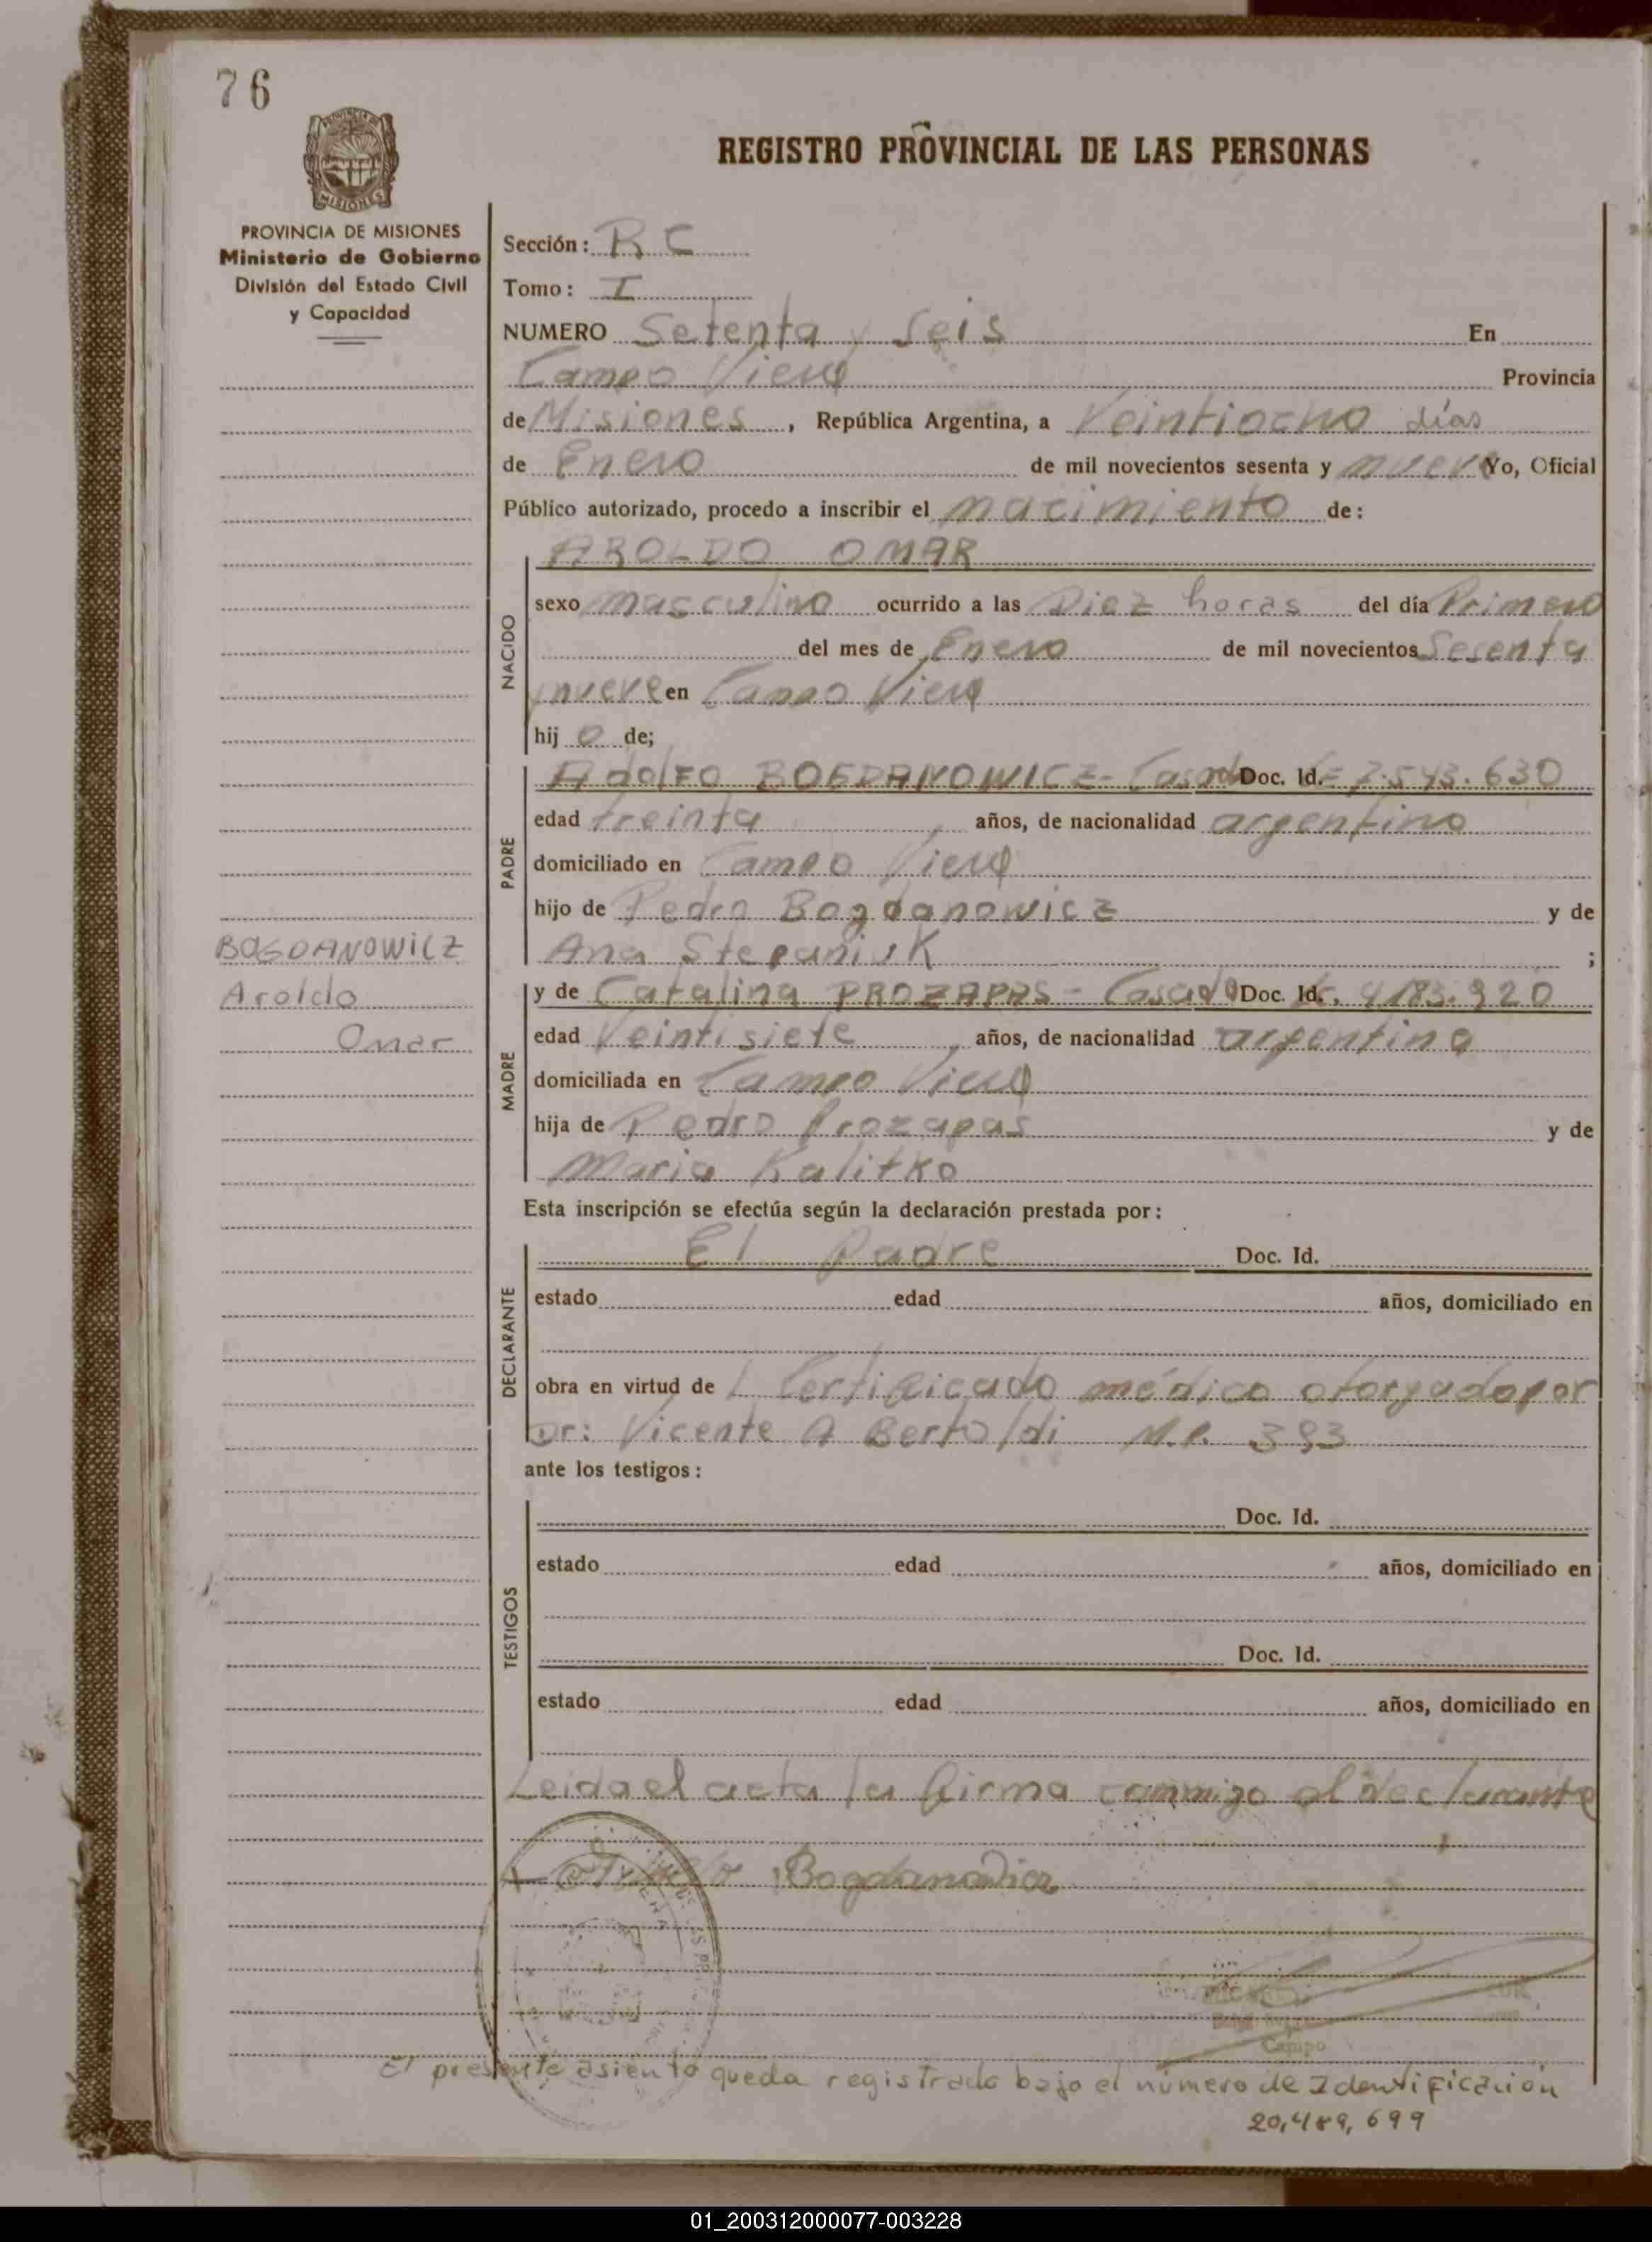 76
PROVINCIA DE MISIONES
Ministerio de Gobierno
División del Estado Civil
y Capacidad
REGISTRO PROVINCIAL DE LAS PERSONAS
Sección: R C
Tomo: I
NUMERO Setenta y Seis En
Campo Viera Provincia
de Misiones, República Argentina, a Veintiocho días
de Enero de mil novecientos sesenta y nueve Yo, Oficial
Público autorizado, procedo a inscribir el nacimiento de:
NACIDO
AROLDO OMAR
sexo masculino ocurrido a las Diez horas del día Primero
del mes de Enero de mil novecientos Sesenta
y nueve en Campo Viera
hij o de;
PADRE
Adolfo BOGDANOWICZ - Casado Doc. Id. 7.543.630
edad treinta años, de nacionalidad argentino
domiciliado en Campo Viera
hijo de Pedro Bogdanowicz y de
Ana Stepaniuk ;
BOGDANOWICZ
Aroldo
Omar
MADRE
y de Catalina PROZAPAS - Casada Doc. Id. 4.183.920
edad Veintisiete años, de nacionalidad argentina
domiciliada en Campo Viera
hija de Pedro Prozapas y de
Maria Kalitko
Esta inscripción se efectúa según la declaración prestada por:
DECLARANTE
El Padre Doc. Id.
estado edad años, domiciliado en
obra en virtud de 1 Certificado médico otorgado por
Dr: Vicente A Bertoldi M.P. 393
ante los testigos:
TESTIGOS
Doc. Id.
estado edad años, domiciliado en
Doc. Id.
estado edad años, domiciliado en
Leida el acta la firma conmigo el declarante
Bogdanowicz
Campo
El presente asiento queda registrado bajo el número de Identificación
20,489,699
01_200312000077-003228